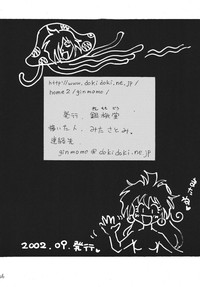 http://www.dokidoki.ne.jp/
home2/ginmomo/
発行. 銀桃堂
描いた人. みたさとみ.
連絡先
ginmomo@dokidoki.ne.jp
またね
2002.09.発行.